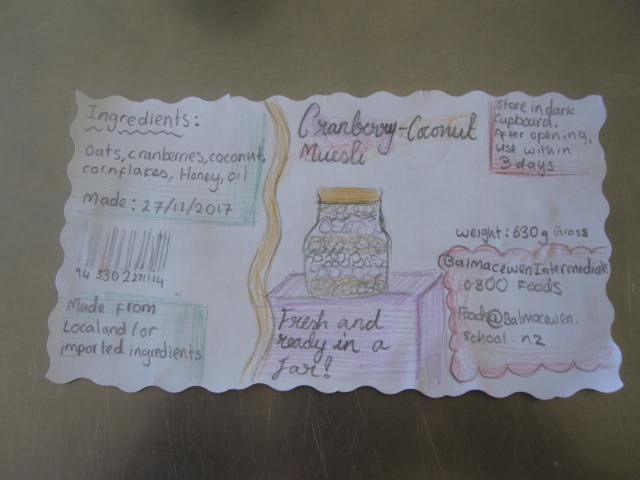 Ingredients:
Oats, cranberries, coconut,
cornflakes, Honey, oil
Made: 27/11/2017
Made from
Local and/or
imported ingredients
Cranberry-Coconut
Muesli
Fresh and
ready in a
Jar!
Store in dark
cupboard.
After opening,
use within
3 days
weight: 630g Gross
Balmacewen Intermediate
0800 FOODS
Food@Balmacewen.
school.nz